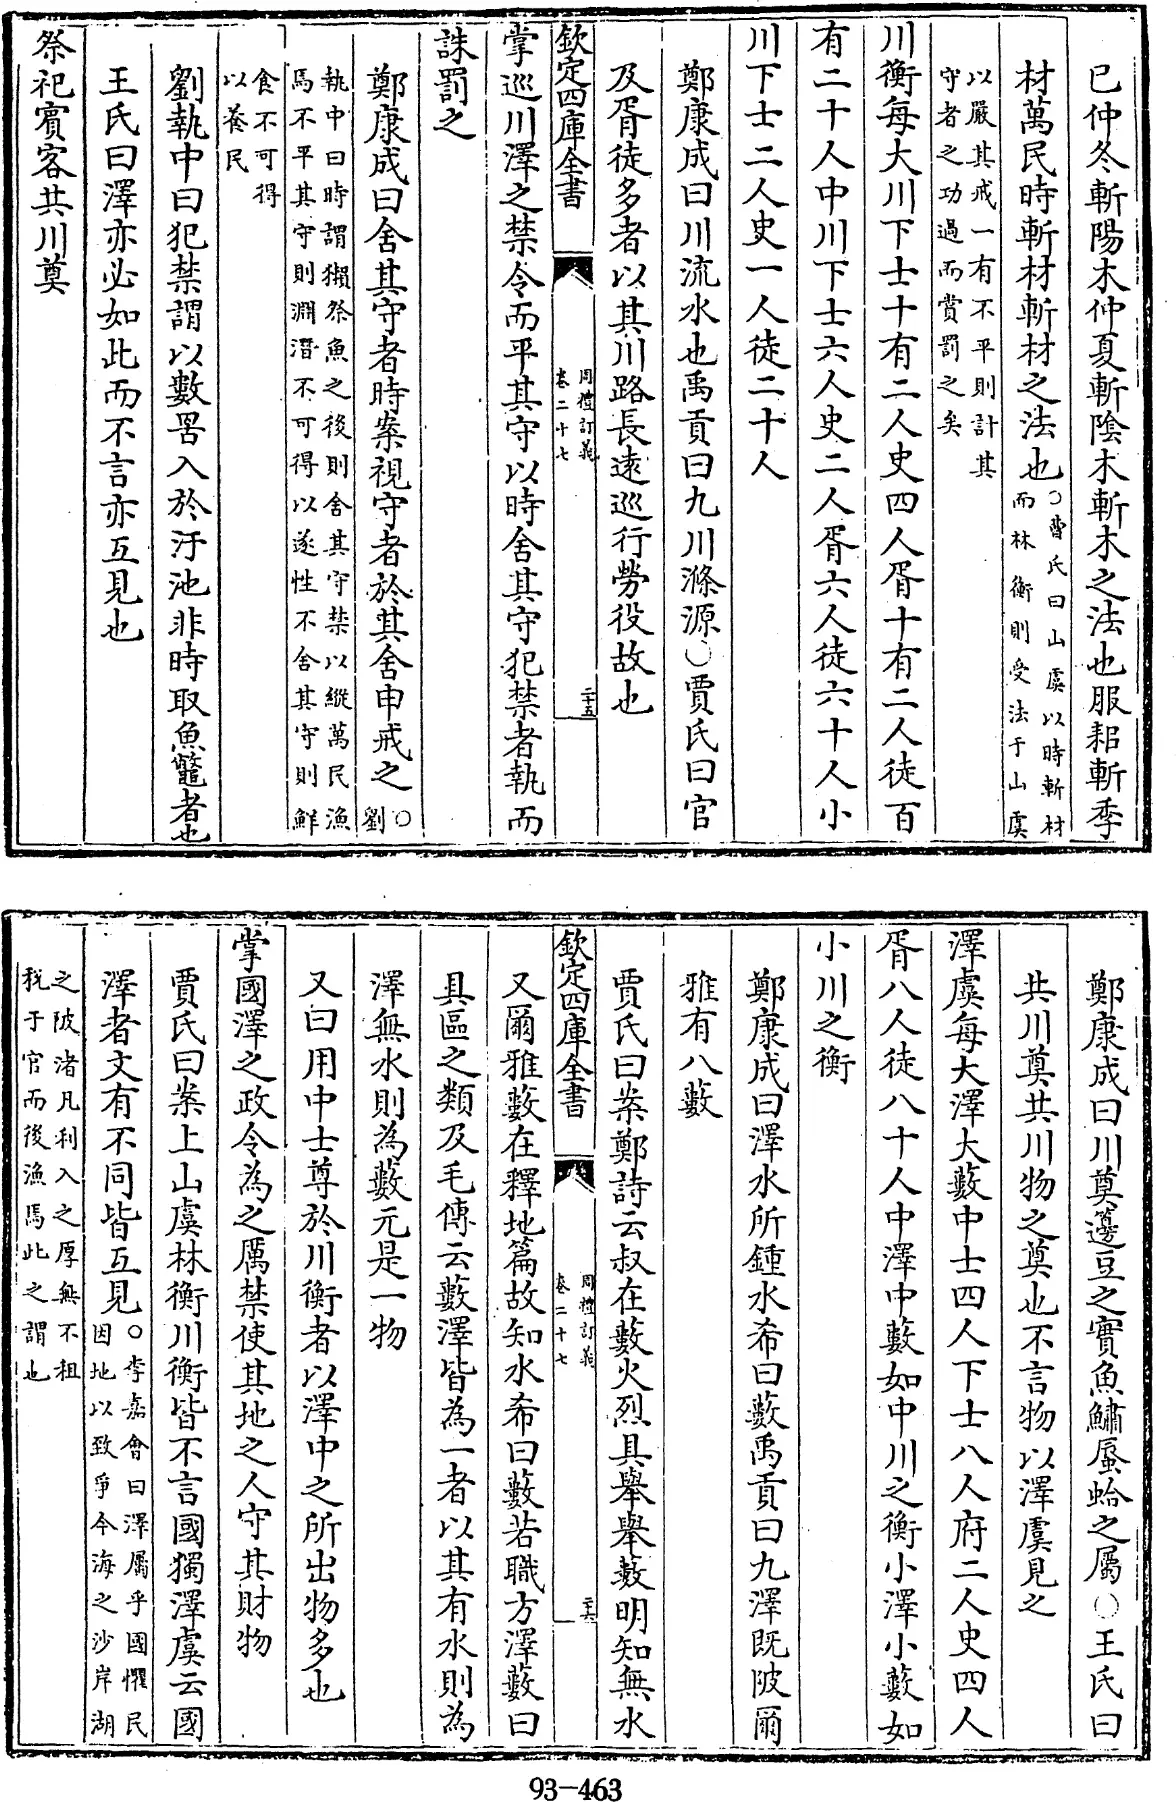 已仲冬斬陽木仲夏斬陰木斬木之法也服耜斬季
材萬民時斬材斬材之法也○曹氏曰山虞以時斬材
而林衡則受法于山虞
以嚴其戒一有不平則計其
守者之功過而賞罰之矣
川衡每大川下士十有二人史四人胥十有二人徒百
有二十人中川下士六人史二人胥六人徒六十人小
川下士二人史一人徒二十人
鄭康成曰川流水也禹貢曰九川滌源○賈氏曰官
及胥徒多者以其川路長遠巡行勞役故也
欽定四庫全書
周禮訂義
卷二十七
二十五
掌巡川澤之禁令而平其守以時舍其守犯禁者執而
誅罰之
鄭康成曰舍其守者時案視守者於其舍申戒之○
劉
執中曰時謂獺祭魚之後則舍其守禁以縱萬民漁
焉不平其守則淵潛不可得以遂性不舍其守則鮮
食不可得
以養民
劉執中曰犯禁謂以數罟入於汙池非時取魚鼈者也
王氏曰澤亦必如此而不言亦互見也
祭祀賓客共川奠
鄭康成曰川奠籩豆之實魚鱐蜃蛤之屬○王氏曰
共川奠共川物之奠也不言物以澤虞見之
澤虞每大澤大藪中士四人下士八人府二人史四人
胥八人徒八十人中澤中藪如中川之衡小澤小藪如
小川之衡
鄭康成曰澤水所鍾水希曰藪禹貢曰九澤既陂爾
雅有八藪
賈氏曰案鄭詩云叔在藪火烈具舉舉藪明知無水
欽定四庫全書
周禮訂義
卷二十七
二十六
又爾雅藪在釋地篇故知水希曰藪若職方澤藪曰
具區之類及毛傳云藪澤皆為一者以其有水則為
澤無水則為藪元是一物
又曰用中士尊於川衡者以澤中之所出物多也
掌國澤之政令為之厲禁使其地之人守其財物
賈氏曰案上山虞林衡川衡皆不言國獨澤虞云國
澤者文有不同皆互見○李嘉會曰澤屬乎國懼民
因地以致爭今海之沙岸湖
之陂渚凡利入之厚無不租
稅于官而後漁焉此之謂也
93-463